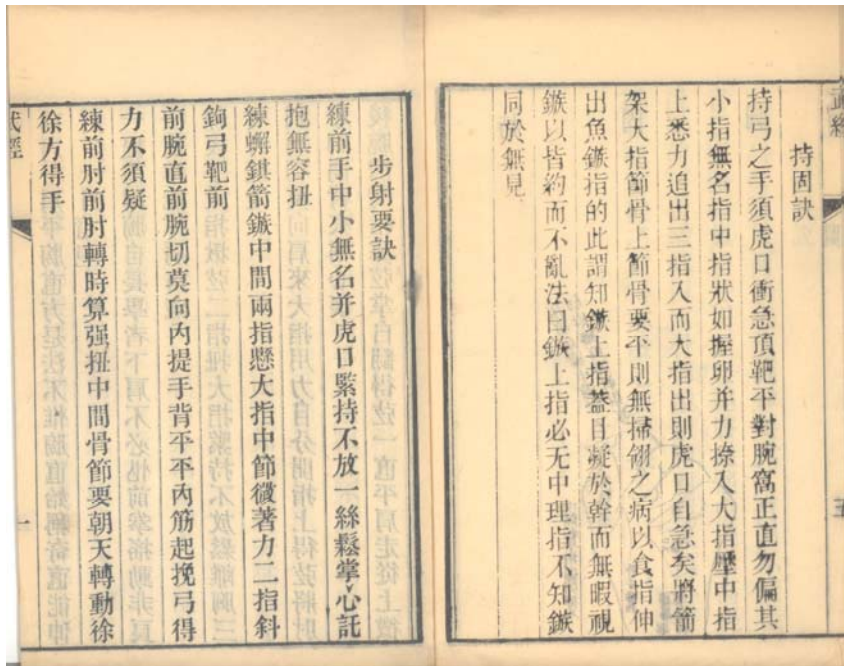 武經
持固訣
持弓之手須虎口衝急頂靶平對腕窩正直勿偏其
小指無名指中指狀如握卵并力捺入大指壓中指
上悉力追出三指入而大指出則虎口自急矣將箭
架大指節骨上節骨要平則無掃翎之病以食指伸
出魚鏃指的此謂知鏃上指葢目凝於幹而無暇視
鏃以皆約而不亂法曰鏃上指必无中理指不知鏃
同於無見
五
步射要訣
練前手中小無名并虎口緊持不放一絲鬆掌心託
抱無容扭
練蠏錤箭鏃中間兩指懸大指中節微著力二指斜
鉤弓靶前
前腕直前腕切莫向內提手背平平內筋起挽弓得
力不須疑
練前肘前肘轉時算强扭中間骨節要朝天轉動徐
徐方得手
武經
一